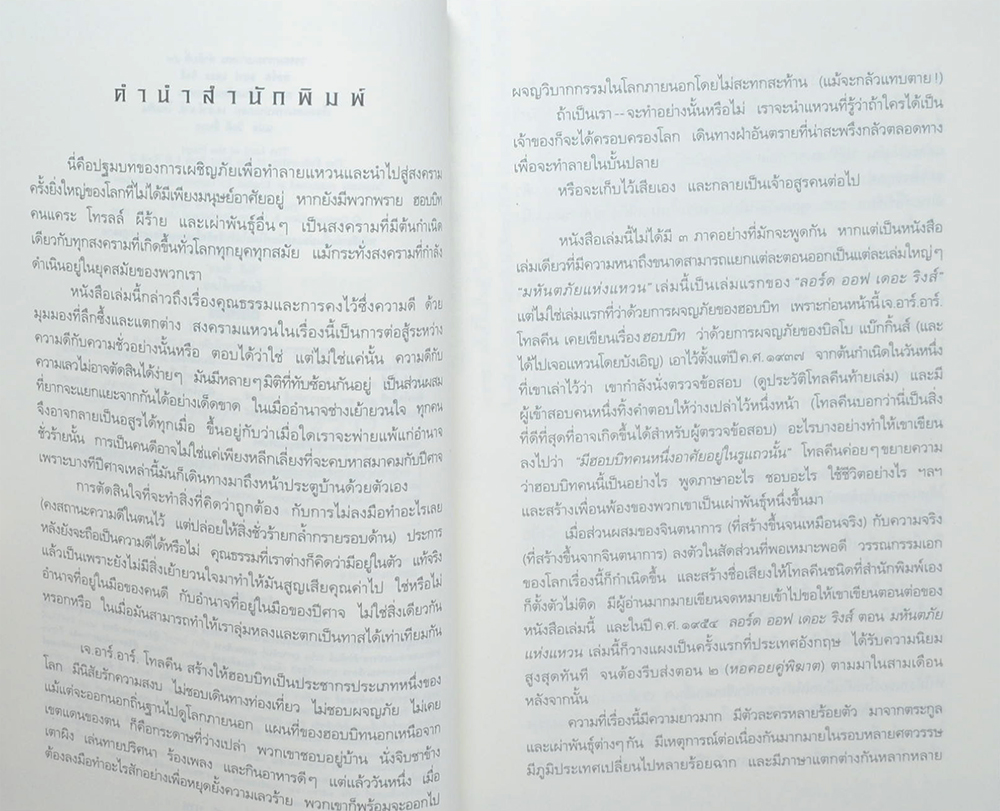 คำนำสำนักพิมพ์
นี่คือปฐมบทของการเผชิญภัยเพื่อทำลายแหวนและนำไปสู่สงคราม
ครั้งยิ่งใหญ่ของโลกที่ไม่ได้มีเพียงมนุษย์อาศัยอยู่ หากยังมีพวกพราย ฮอบบิท
คนแคระ โทรลล์ ผีร้าย และเผ่าพันธุ์อื่นๆ เป็นสงครามที่มีต้นกำเนิด
เดียวกับทุกสงครามที่เกิดขึ้นทั่วโลกทุกยุคทุกสมัย แม้กระทั่งสงครามที่กำลัง
ดำเนินอยู่ในยุคสมัยของพวกเรา
หนังสือเล่มนี้กล่าวถึงเรื่องคุณธรรมและการคงไว้ซึ่งความดี ด้วย
มุมมองที่ลึกซึ้งและแตกต่าง สงครามแหวนในเรื่องนี้เป็นการต่อสู้ระหว่าง
ความดีกับความชั่วอย่างนั้นหรือ ตอบได้ว่าใช่ แต่ไม่ใช่แค่นั้น ความดีกับ
ความเลวไม่อาจตัดสินได้ง่ายๆ มันมีหลายๆ มิติที่ทับซ้อนกันอยู่ เป็นส่วนผสม
ที่ยากจะแยกแยะจากกันได้อย่างเด็ดขาด ในเมื่ออำนาจช่างเย้ายวนใจ ทุกคน
จึงอาจกลายเป็นอสูรได้ทุกเมื่อ ขึ้นอยู่กับว่าเมื่อใดเราจะพ่ายแพ้แก่อำนาจ
ชั่วร้ายนั้น การเป็นคนดีอาจไม่ใช่แค่เพียงหลีกเลี่ยงที่จะคบหาสมาคมกับปีศาจ
เพราะบางทีปีศาจเหล่านี้มันก็เดินทางมาถึงหน้าประตูบ้านด้วยตัวเอง
การตัดสินใจที่จะทำสิ่งที่คิดว่าถูกต้อง กับการไม่ลงมือทำอะไรเลย
(คงสถานะความดีในตนไว้ แต่ปล่อยให้สิ่งชั่วร้ายกล้ำกรายรอบด้าน) ประการ
หลังยังจะถือเป็นความดีได้หรือไม่ คุณธรรมที่เราต่างก็คิดว่ามีอยู่ในตัว แท้จริง
แล้วเป็นเพราะยังไม่มีสิ่งเย้ายวนใจมาทำให้มันสูญเสียคุณค่าไป ใช่หรือไม่
อำนาจที่อยู่ในมือของคนดี กับอำนาจที่อยู่ในมือของปีศาจ ไม่ใช่สิ่งเดียวกัน
หรอกหรือ ในเมื่อมันสามารถทำให้เราลุ่มหลงและตกเป็นทาสได้เท่าเทียมกัน
เจ.อาร์.อาร์. โทลคีน สร้างให้ฮอบบิทเป็นประชากรประเภทหนึ่งของ
โลก มีนิสัยรักความสงบ ไม่ชอบเดินทางท่องเที่ยว ไม่ชอบผจญภัย ไม่เคย
แม้แต่จะออกนอกถิ่นฐานไปดูโลกภายนอก แผนที่ของฮอบบิทนอกเหนือจาก
เขตแดนของตน ก็คือกระดาษที่ว่างเปล่า พวกเขาชอบอยู่บ้าน นั่งจิบชาข้าง
เตาผิง เล่นทายปริศนา ร้องเพลง และกินอาหารดีๆ แต่แล้ววันหนึ่ง เมื่อ
ต้องลงมือทำอะไรสักอย่างเพื่อหยุดยั้งความเลวร้าย พวกเขาก็พร้อมจะออกไป
ผจญวิบากกรรมในโลกภายนอกโดยไม่สะทกสะท้าน (แม้จะกลัวแทบตาย!)
ถ้าเป็นเรา--จะทำอย่างนั้นหรือไม่ เราจะนำแหวนที่รู้ว่าถ้าใครได้เป็น
เจ้าของก็จะได้ครอบครองโลก เดินทางฝ่าอันตรายที่น่าสะพรึงกลัวตลอดทาง
เพื่อจะทำลายในบั้นปลาย
หรือจะเก็บไว้เสียเอง และกลายเป็นเจ้าอสูรคนต่อไป
หนังสือเล่มนี้ไม่ได้มี ๓ ภาคอย่างที่มักจะพูดกัน หากแต่เป็นหนังสือ
เล่มเดียวที่มีความหนาถึงขนาดสามารถแยกแต่ละตอนออกเป็นแต่ละเล่มใหญ่ๆ
"มหันตภัยแห่งแหวน" เล่มนี้เป็นเล่มแรกของ "ลอร์ด ออฟ เดอะ ริงส์"
แต่ไม่ใช่เล่มแรกที่ว่าด้วยการผจญภัยของฮอบบิท เพราะก่อนหน้านี้ เจ.อาร์.อาร์.
โทลคีน เคยเขียนเรื่อง ฮอบบิท ว่าด้วยการผจญภัยของบิลโบ แบ๊กกิ้นส์ (และ
ได้ไปเจอแหวนโดยบังเอิญ) เอาไว้ตั้งแต่ปี ค.ศ. ๑๙๓๗ จากต้นกำเนิดในวันหนึ่ง
ที่เขาเล่าไว้ว่า เขากำลังนั่งตรวจข้อสอบ (ดูประวัติโทลคีนท้ายเล่ม) และมี
ผู้เข้าสอบคนหนึ่งทิ้งคำตอบให้ว่างเปล่าไว้หนึ่งหน้า (โทลคีนบอกว่านี่เป็นสิ่ง
ที่ดีที่สุดที่อาจเกิดขึ้นได้สำหรับผู้ตรวจข้อสอบ) อะไรบางอย่างทำให้เขาเขียน
ลงไปว่า "มีฮอบบิทคนหนึ่งอาศัยอยู่ในรูแถวนั้น" โทลคีนค่อยๆ ขยายความ
ว่าฮอบบิทคนนี้เป็นอย่างไร พูดภาษาอะไร ชอบอะไร ใช้ชีวิตอย่างไร ฯลฯ
และสร้างเพื่อนพ้องของพวกเขาเป็นเผ่าพันธุ์หนึ่งขึ้นมา
เมื่อส่วนผสมของจินตนาการ (ที่สร้างขึ้นจนเหมือนจริง) กับความจริง
(ที่สร้างขึ้นจากจินตนาการ) ลงตัวในสัดส่วนที่พอเหมาะพอดี วรรณกรรมเอก
ของโลกเรื่องนี้ก็กำเนิดขึ้น และสร้างชื่อเสียงให้โทลคีนชนิดที่สำนักพิมพ์เอง
ก็ตั้งตัวไม่ติด มีผู้อ่านมากมายเขียนจดหมายเข้าไปขอให้เขาเขียนตอนต่อของ
หนังสือเล่มนี้ และในปี ค.ศ. ๑๙๕๔ ลอร์ด ออฟ เดอะ ริงส์ ตอน มหันตภัย
แห่งแหวน เล่มนี้ก็วางแผงเป็นครั้งแรกที่ประเทศอังกฤษ ได้รับความนิยม
สูงสุดทันที จนต้องรีบส่งตอน ๒ (หอคอยคู่พิฆาต) ตามมาในสามเดือน
หลังจากนั้น
ความที่เรื่องนี้มีความยาวมาก มีตัวละครหลายร้อยตัว มาจากตระกูล
และเผ่าพันธุ์ต่างๆ กัน มีเหตุการณ์ต่อเนื่องกันมากมายในรอบหลายศตวรรษ
มีภูมิประเทศเปลี่ยนไปหลายร้อยฉาก และมีภาษาแตกต่างกันหลากหลาย